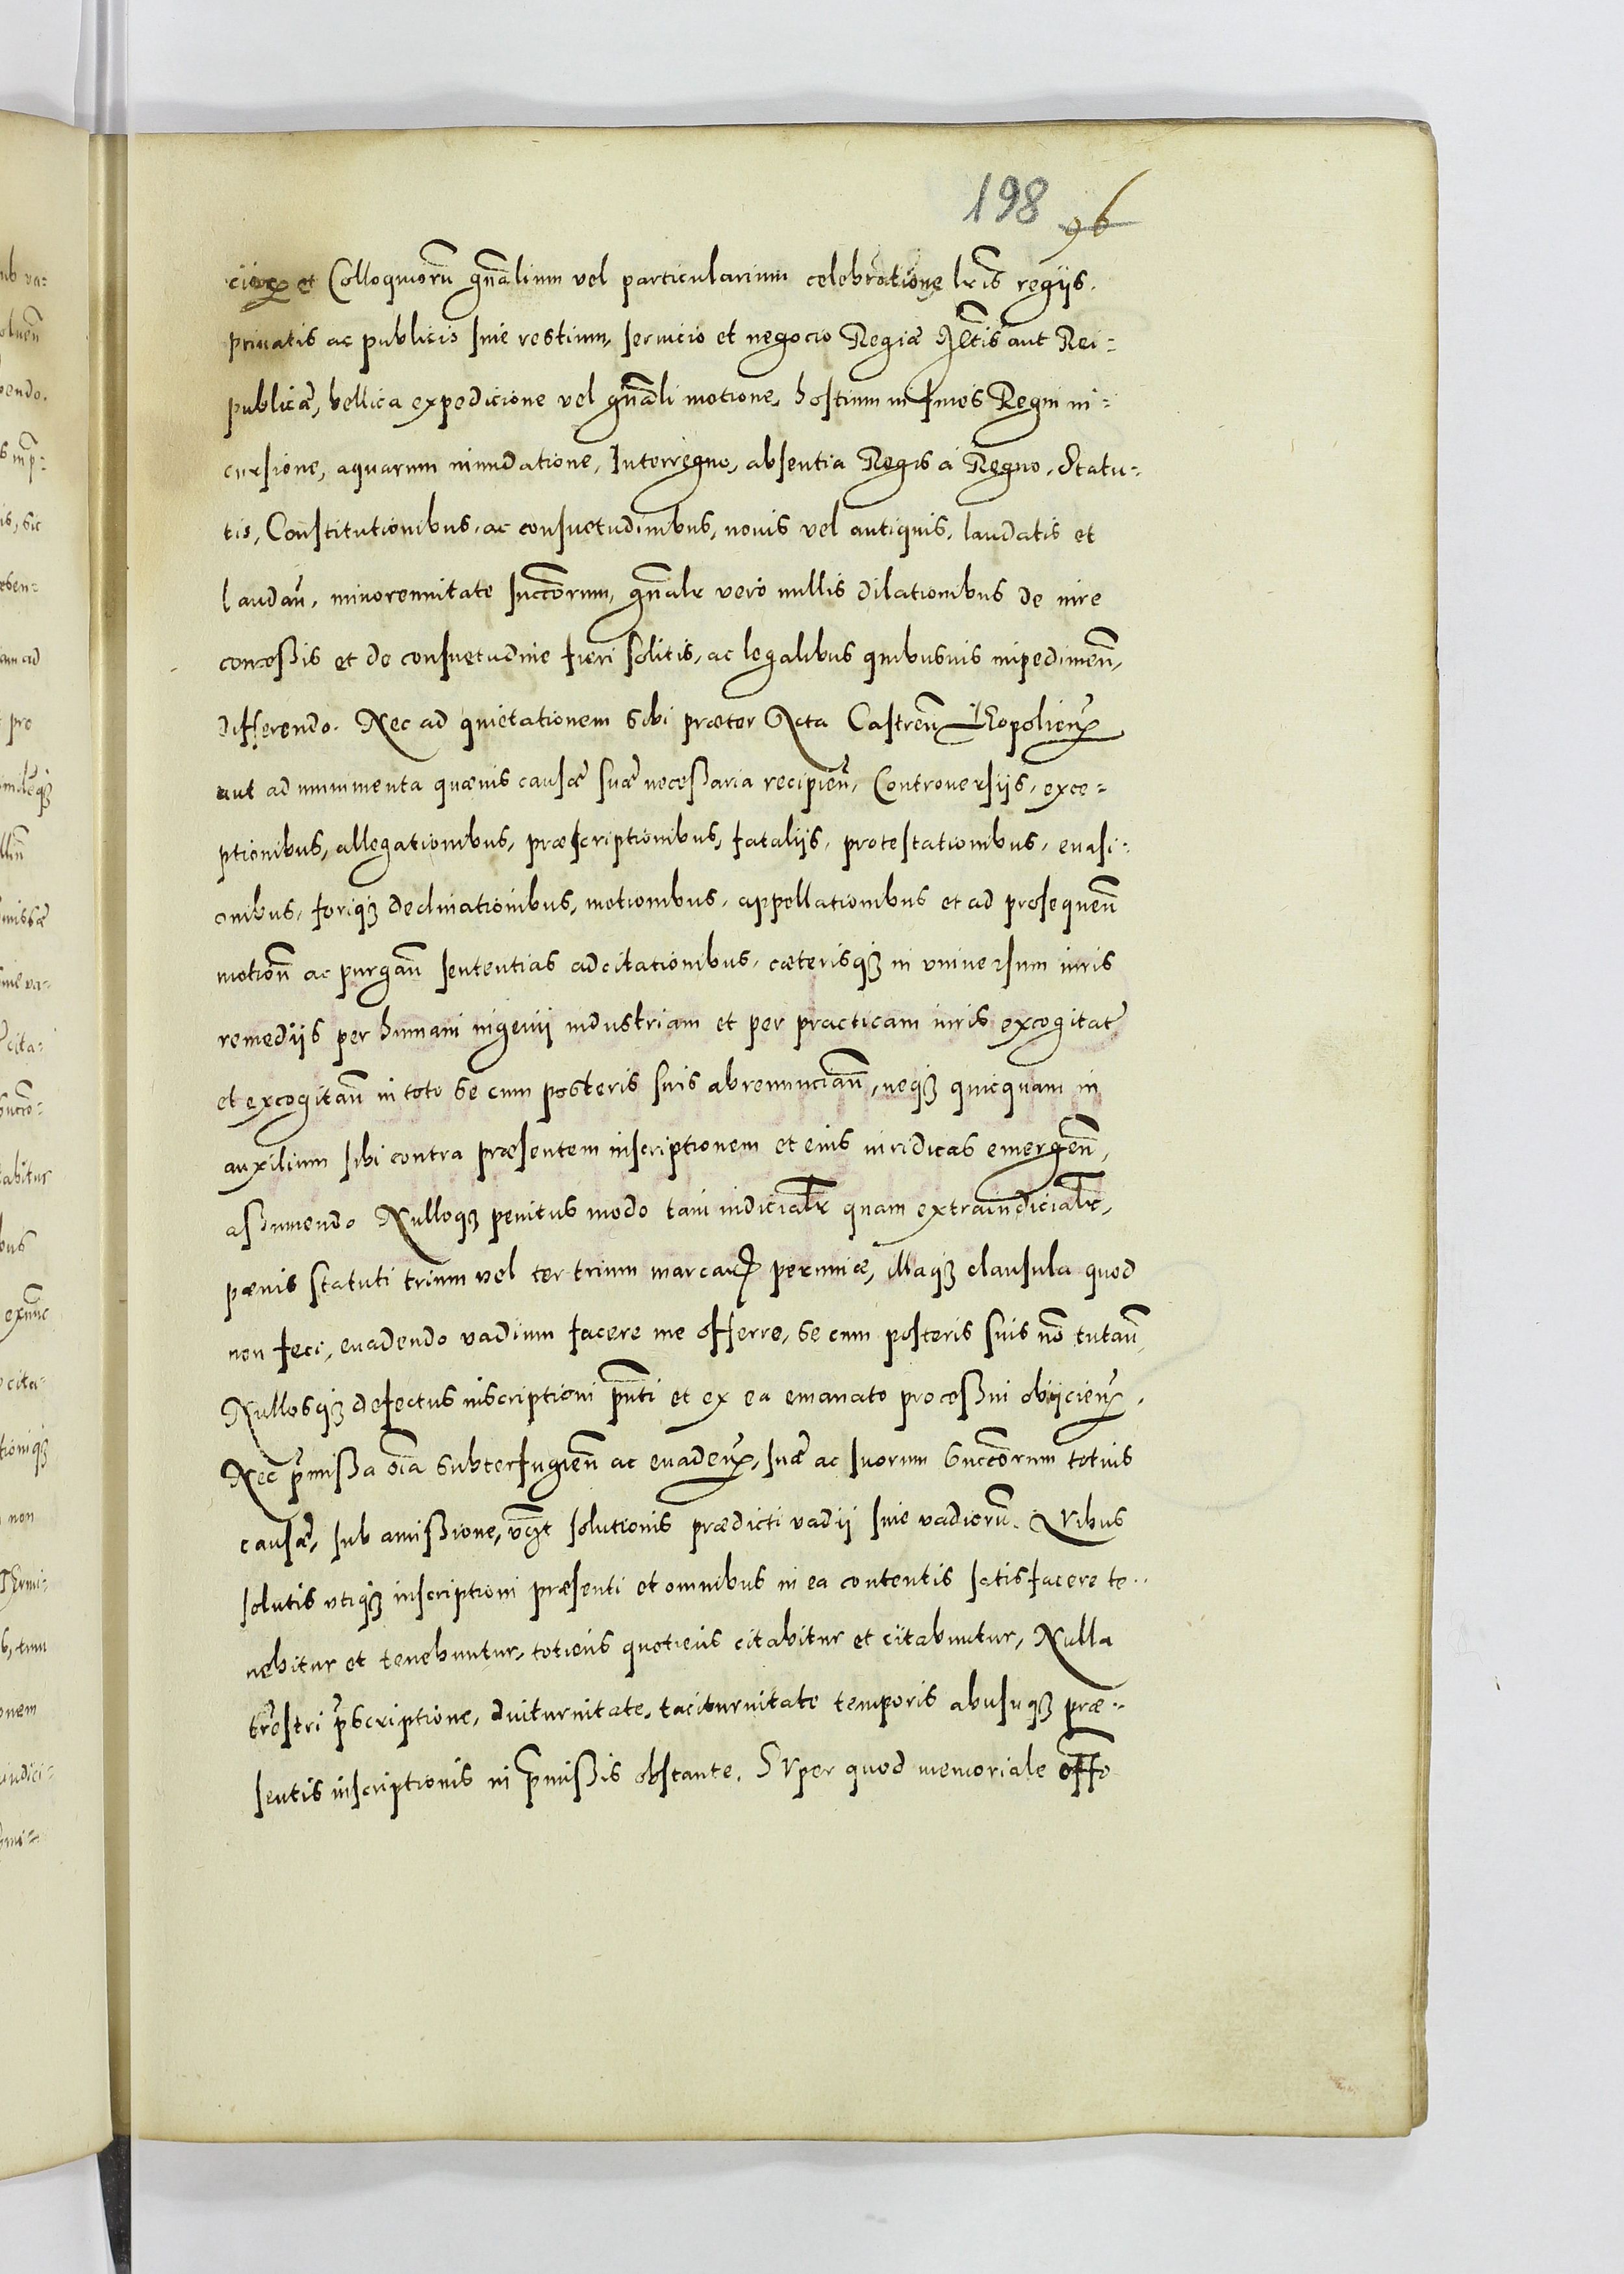 198 96
ciorum et Colloquiorũ gñalium vel particularium celebratione lr̃is regijs,
priuatis ac publicis siue vestium, seruicio et negocio Regiæ Mtis aut Rei-
publicæ, bellica expedicione vel gñali motione, hostium in fines Regni in-
cursione, aquarum inundatione, Interregno, absentia Regis á Regno, Statu-
tis, Constitutionibus, ac consuetudinibus, nouis vel antiquis, laudatis et
laudañ, minorennitate succõrum, gñalr vero nullis dilationibus de iure
concessis et de consuetudine fieri solitis, ac legalibus quibusuis impedimeñ,
differendo. Nec ad quietationem sibi præter Acta Castreñ Leopolieñ
aut ad munimenta quæuis causæ suæ necessaria recipieñ, Controuersijs, exce-
ptionibus, allegationibus, præscriptionibus, fatalijs, protestationibus, euasi-
onibus, foriqꝫ declinationibus, motionibus, appellationibus et ad prosequeñ
motioñ ac purgañ sententias adcitationibus, cæterisqꝫ in vniuersum iuris
remedijs per humani ingenij industriam et per practicam iuris excogitat
et excogitañ in toto se cum posteris suis abrenunciañ, neqꝫ quicquam in
auxilium sibi contra præsentem inscriptionem et eius iuridicas emergeñ,
assumendo Nulloqꝫ penitus modo tam iudicialr quam extraiudicialr,
pænis statuti trium vel ter trium marcarꝝ pecuniæ, illaqꝫ clausula quod
non feci, euadendo vadium facere me offerre, se cum posteris suis nõ tutañ,
Nullosqꝫ defectus inscriptioni pñti et ex ea emanato processui obijcieñ.
Nec p̃missa oĩa subterfugieñ ac euadeñ, suæ ac suorum succõrum totius
causæ, sub amissione, vigẽ solutionis prædicti vadij siue vadiorũ. Quibus
solutis vtiqꝫ inscriptioni præsenti et omnibus in ea contentis satisfacere te-
nebitur et tenebuntur, toties quoties citabitur et citabuntur, Nulla
trẽstri p̃scriptione, diuturnitate, taciturnitate temporis abusuqꝫ præ-
sentis inscriptionis in p̃missis obstante. SVper quod memoriale offo